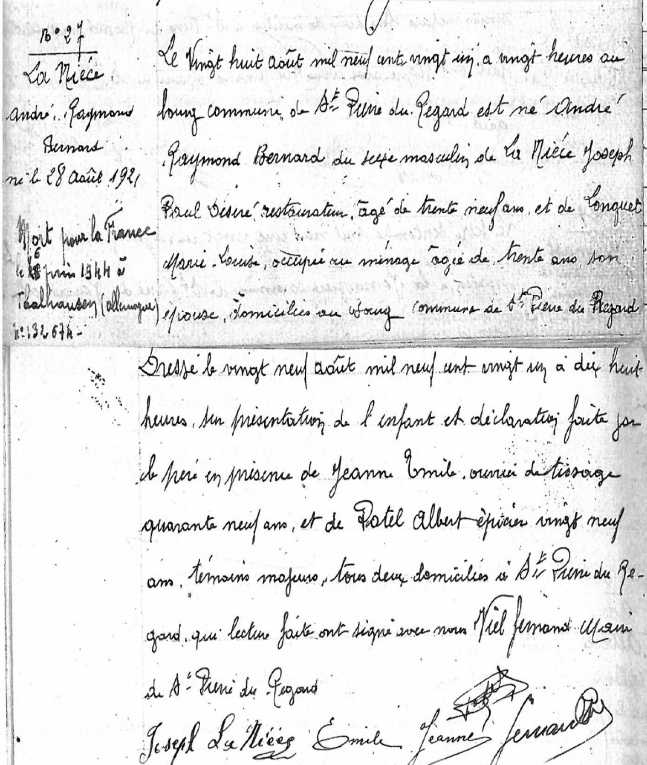 N° 27
La Nièce
André Raymond
Bernard
né le 28 Août 1921
Mort pour la France
le juin 1944 à
Thalhausen (Allemagne)
Le Vingt huit août mil neuf cent vingt un, a vingt heures au
bourg commune de St Pierre du Regard est né André
Raymond Bernard du sexe masculin de La Nièce Joseph
Paul Désiré restaurateur, âgé de trente neuf ans, et de Longuet
Marie-Louise, occupée au ménage âgée de trente ans son
épouse, domiciliés au bourg commune de St Pierre du Regard
Dressé le vingt neuf août mil neuf cent vingt un à dix huit
heures, sur présentation de l'enfant et déclaration faite par
le père en présence de Jeanne Emile, ouvrier de tissage
quarante neuf ans, et de Patel Albert épicier vingt neuf
ans, témoins majeurs, tous deux domiciliés à St Pierre du Re-
gard, qui lecture faite ont signé avec nous Viel Fernand Maire
de St Pierre du Regard
Joseph La Nièce Emile Jeanne